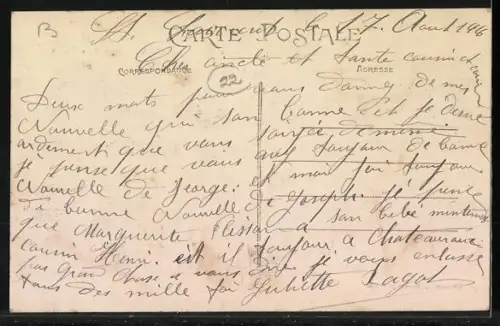 B
St. le 17 Août 196
CARTE POSTALE
Cher oncle et tante cousin et
CORRESPONDANCE
ADRESSE
22
Deux mots pour vous donner de mes
Nouvelle qui son bonne et je désire
ardiment que vous de même
je pense que vous avez toujour de bonne
Nouvelle de George et moi j'ai toujour
de bonne Nouvelle de Joseph je pense
que Marguerite a son bébé mintenant
cousin Henri est il toujour a Chateauroux
pas grand chose a vous dire je vous enbrasse
tous des mille foi Juliette